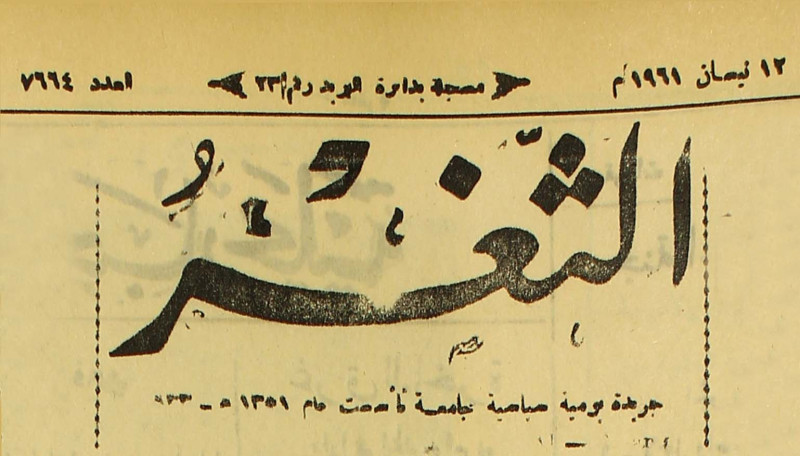 ١٢ نيسان ١٩٦١م مسجلة بدائرة البريد رقم ٢٣ العدد ٧٦٦٤
الثَّغْرُ
جريدة يومية سياسية جامعة تأسست عام ١٣٥١ هـ - ٩٣٣